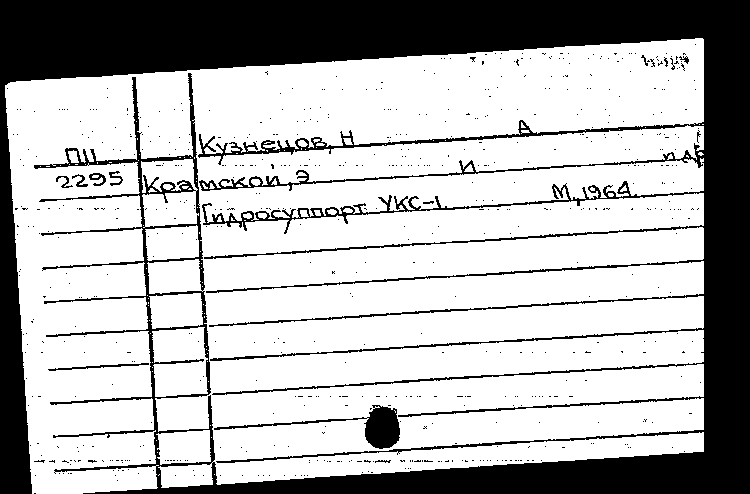 Кузнецов, Н А
ПЦ
2295 Крамской, Э И и др
Гидросуппорт УКС-1. М, 1964.